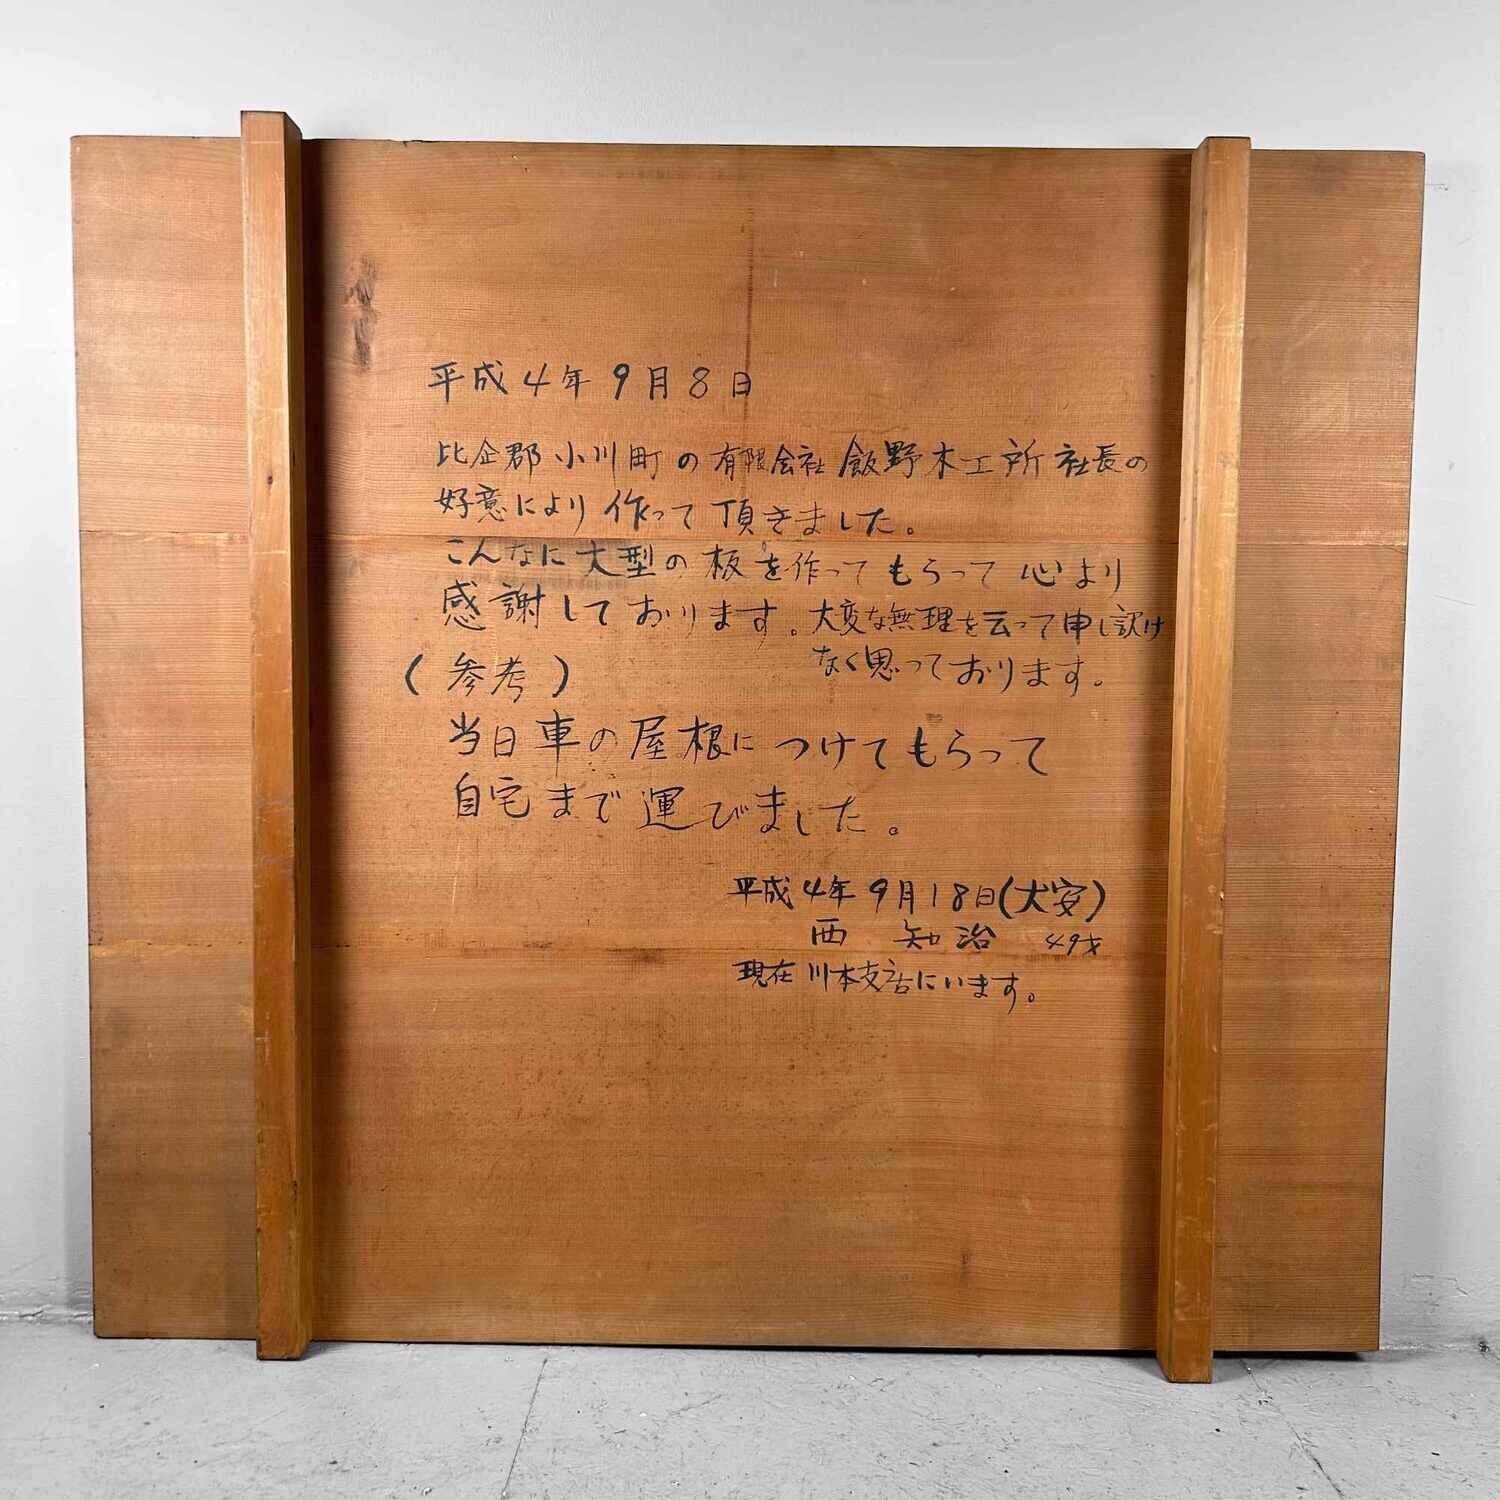 平成4年9月8日
比企郡小川町の有限会社飯野木工所社長の
好意により作って頂きました。
こんなに大型の板を作ってもらって心より
感謝しております。大変な無理を云って申し訳け
なく思っております。
(参考)
当日車の屋根につけてもらって
自宅まで運びました。
平成4年9月18日(大安)
西 知治 49才
現在川本支店にいます。